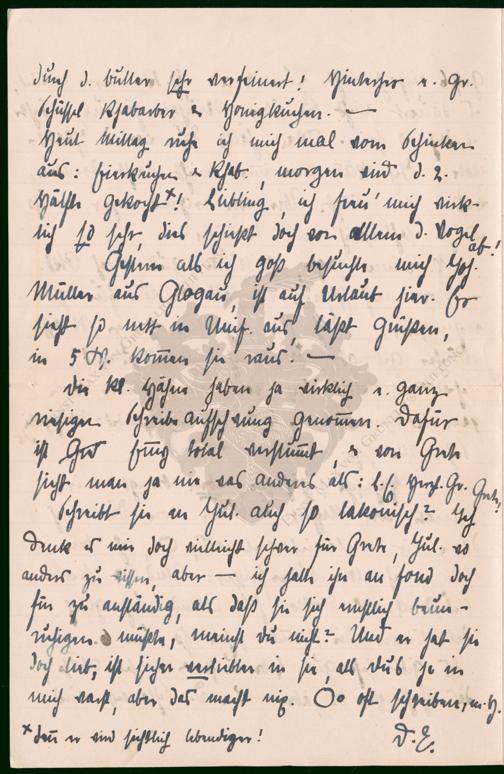 durch d. Butter sehr verfeinert! Hinterher e. gr.
Schüssel Rhabarber u. Honigkuchen. —
Heut Mittag ruhe ich mich mal vom Schinken
aus: Eierkuchen u. Rhab., morgen wird d. 2.
Hälfte gekocht ˣ! Liebling, ich freu' mich wirk-
lich so sehr, dies schießt doch von allem d. Vogel ab!
Gestern als ich goß besuchte mich
Müller aus Glogau, ist auf Urlaub hier. Er
sieht so nett in Unif. aus, läßt grüßen,
in 5 W. kommen sie raus! —
Die kl. Hähne haben ja wirklich e. ganz
riesigen Schreibe Aufschwung genommen. Dafür
ist total verstummt, u. von Grete
sieht man ja nie was anders als: l. E. herzl. Gr. Grete!
Schreibt sie an Jul. auch so lakonisch? Ich
denk es mir doch vielleicht schwer für Grete, Jul. wo
anders zu wissen, aber — ich halte ihn au fond doch
für zu anständig, als daß sie sich ernstlich beun-
ruhigen müßte, meinst du nicht? Und er hat sie
doch lieb, ist sicher verliebter in sie, als Dus je in
mich warst, aber das macht nix. Oo oft schreiben,
ˣ denn er wird sichtlich lebendiger!
D. E.